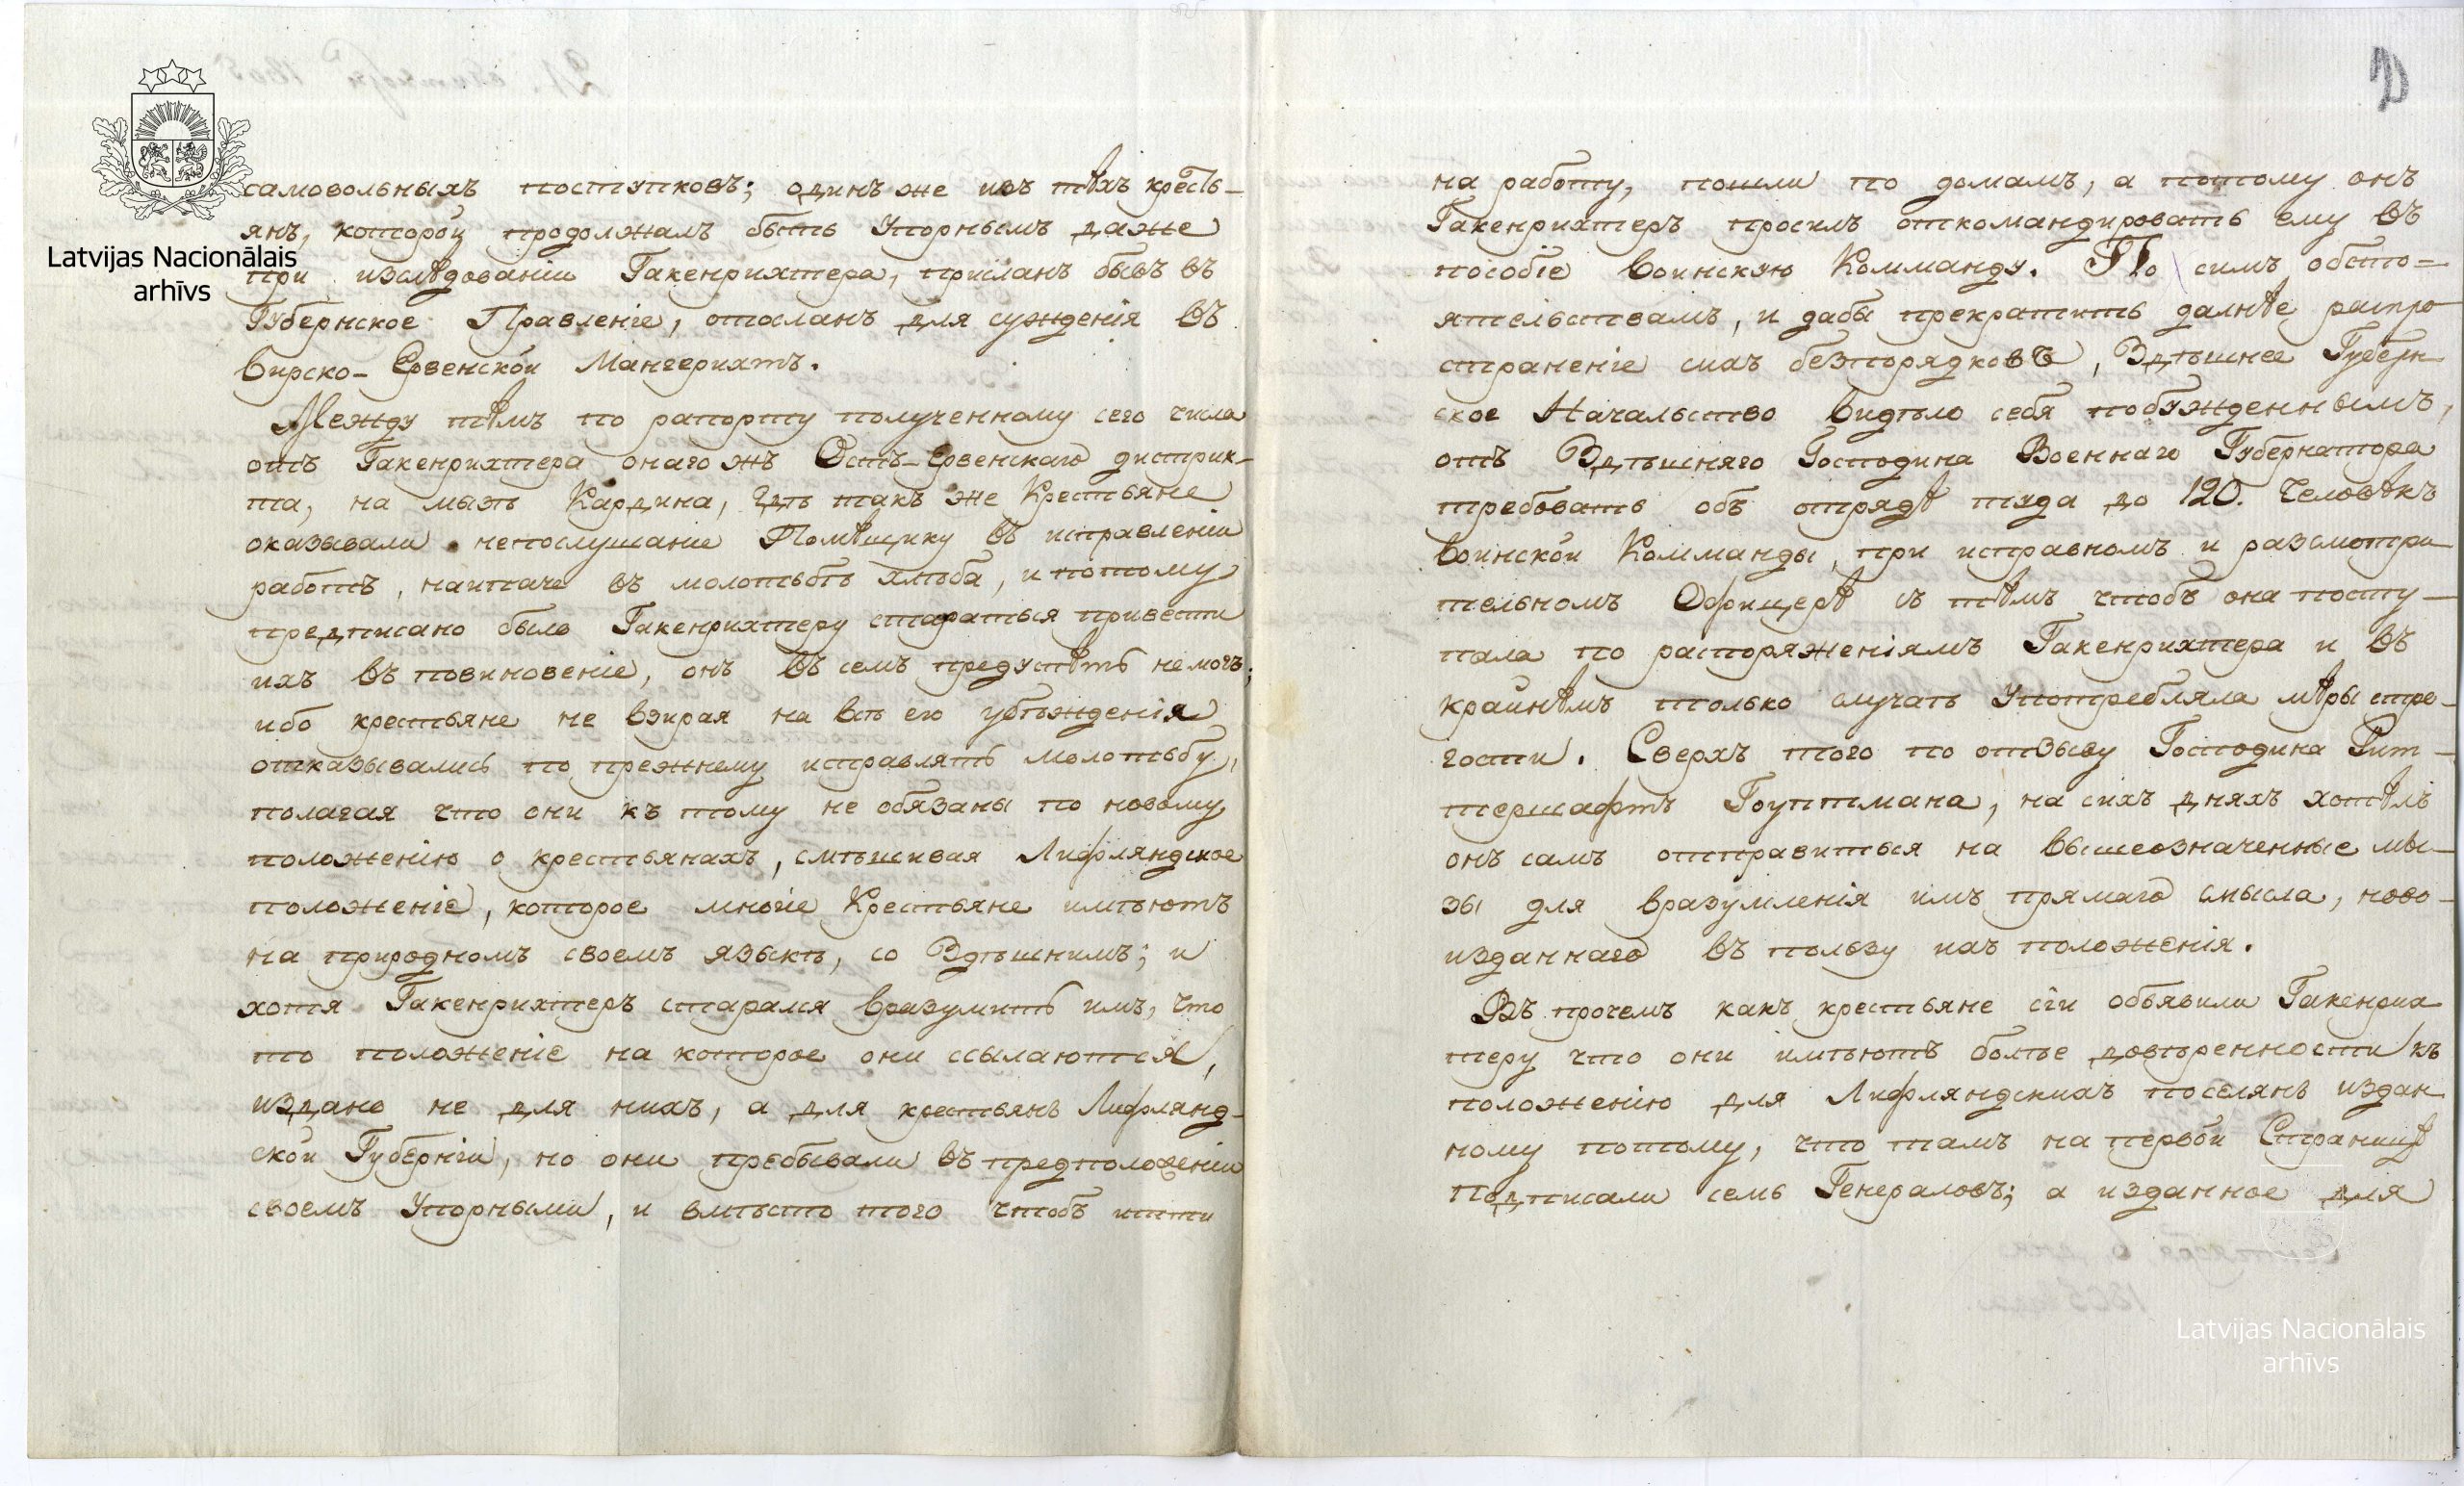 Latvijas Nacionālais
arhīvs
самовольныхъ поступковъ; одинъ же изъ тѣхъ кресть-
янъ, которой продолжалъ быть упорнымъ даже
при изслѣдованіи Гакенрихтера, присланъ бывъ въ
Губернское Правленіе, отосланъ для сужденія въ
Вирско-Ервенской Мангерихтъ.
Между тѣмъ по рапорту полученному сего числа
отъ Гакенрихтера онаго жъ Остъ-Ервенскаго дистрик-
та, на мызѣ Кардина, гдѣ такъ же Крестьяне
оказывали непослушаніе Помѣщику въ исправленіи
работъ, наипаче въ молотьбѣ хлѣба, и потому
предписано было Гакенрихтеру стараться привести
ихъ въ повиновеніе, онъ въ семъ предуспѣть не могъ;
ибо крестьяне не взирая на всѣ его убѣжденія
отказывались по прежнему исправлять молотьбу,
полагая что они къ тому не обязаны по новому
положенію о крестьянахъ, смѣшивая Лифляндское
положеніе, которое многіе Крестьяне имѣютъ
на природномъ своемъ языкѣ, со Здѣшнимъ; и
хотя Гакенрихтеръ старался вразумить имъ, что
то положеніе на которое они ссылаются,
издано не для нихъ, а для крестьянъ Лифлянд-
ской Губерніи, но они пребывали въ предположеніи
своемъ упорными, и вмѣсто того чтобъ итти
на работу, пошли по домамъ, а потому онъ
Гакенрихтеръ просилъ откомандировать ему въ
пособіе воинскую Комманду. По симъ обсто=
ятельствамъ, и дабы прекратить далнѣе распро
страненіе сихъ безпорядковъ, Здѣшнее Губерн
ское Начальство видѣло себя побужденнымъ,
отъ Здѣшняго Господина Военнаго Губернатора
требовать объ отрядѣ туда до 120. Человѣкъ
воинской Комманды, при исправномъ и разсмотри
тельномъ Офицерѣ съ тѣмъ чтобъ она посту-
пала по распоряженіямъ Гакенрихтера и въ
крайнѣмъ только случаѣ употребляла мѣры стро-
гости. Сверхъ того по отзыву Господина Рит-
тершафтъ Гоуптмана, на сихъ дняхъ хотѣлъ
онъ самъ отправиться на вышеозначенные мы-
зы для вразумленія имъ прямаго смысла, ново-
изданнаго въ пользу ихъ положенія.
Въ прочемъ какъ крестьяне сіи объявили Гакенрих
теру что они имѣютъ болѣе довѣренности къ
положенію для Лифляндскихъ поселянъ издан
ному потому, что тамъ на первой Страницѣ
подписали семь Генераловъ; а изданное для
Latvijas Nacionālais
arhīvs